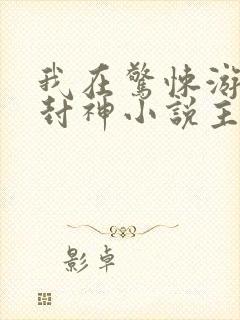 我在驚悚游
封神小說主
影卓